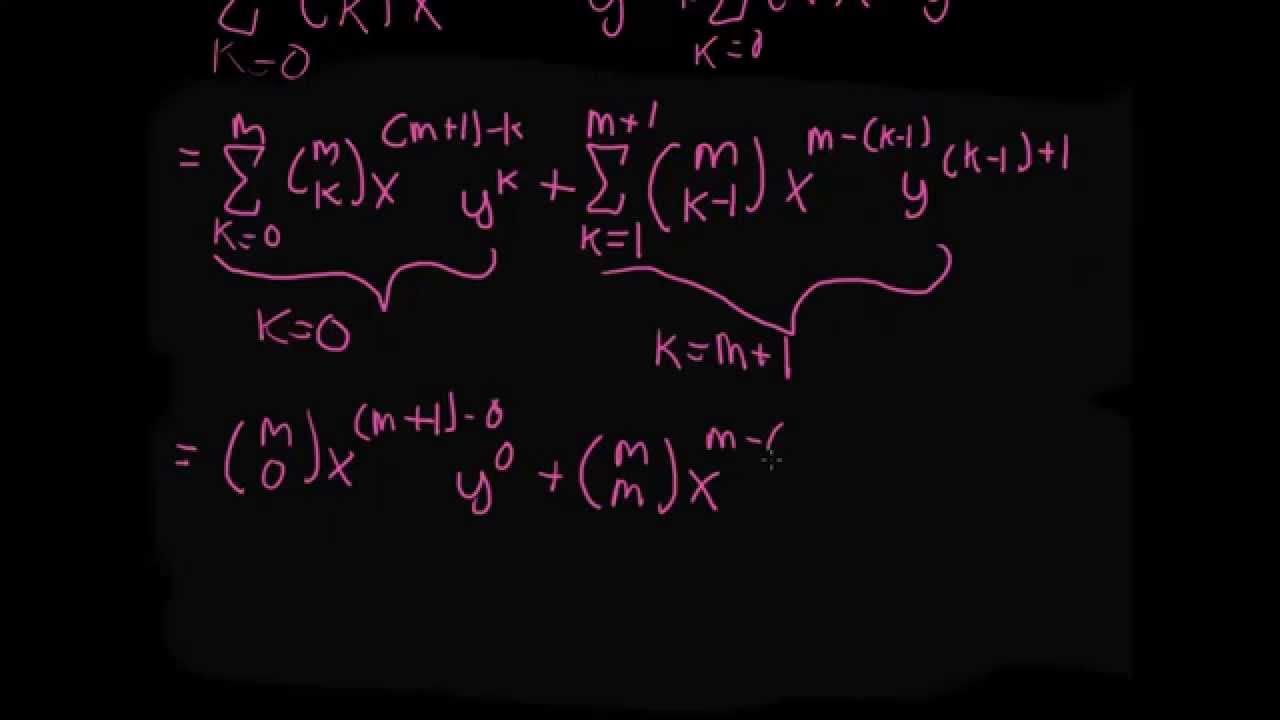 ∑ (k) x y ∑ x y
K=0 K=0
= ∑_{K=0}^{m} (m k) x^{(m+1)-k} y^k + ∑_{k=1}^{m+1} (m k-1) x^{m-(k-1)} y^{(k-1)+1}
K=0 K=m+1
= (m 0) x^{(m+1)-0} y^0 + (m m) x^{m-(